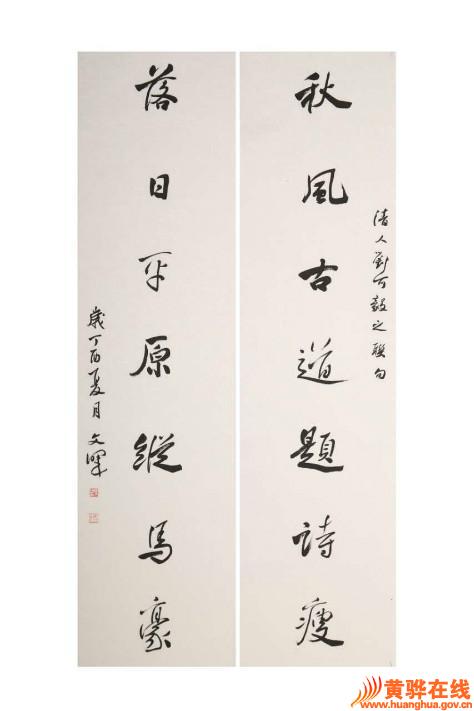 秋風古道題詩瘦
清人劉可毅之聯句
落日平原縱馬豪
歲丁酉夏月 文暉
黄骅在线
www.huanghua.gov.cn